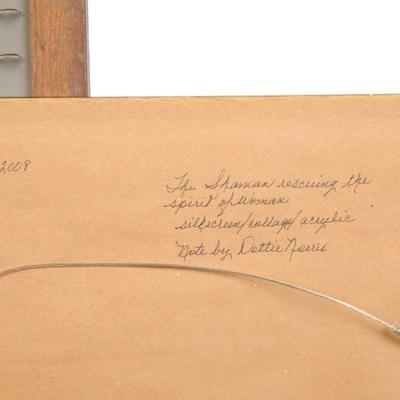 2008
The Shaman rescuing the
spirit of Woman.
silkscreen/collage/acrylic
Note by Dottie Norris